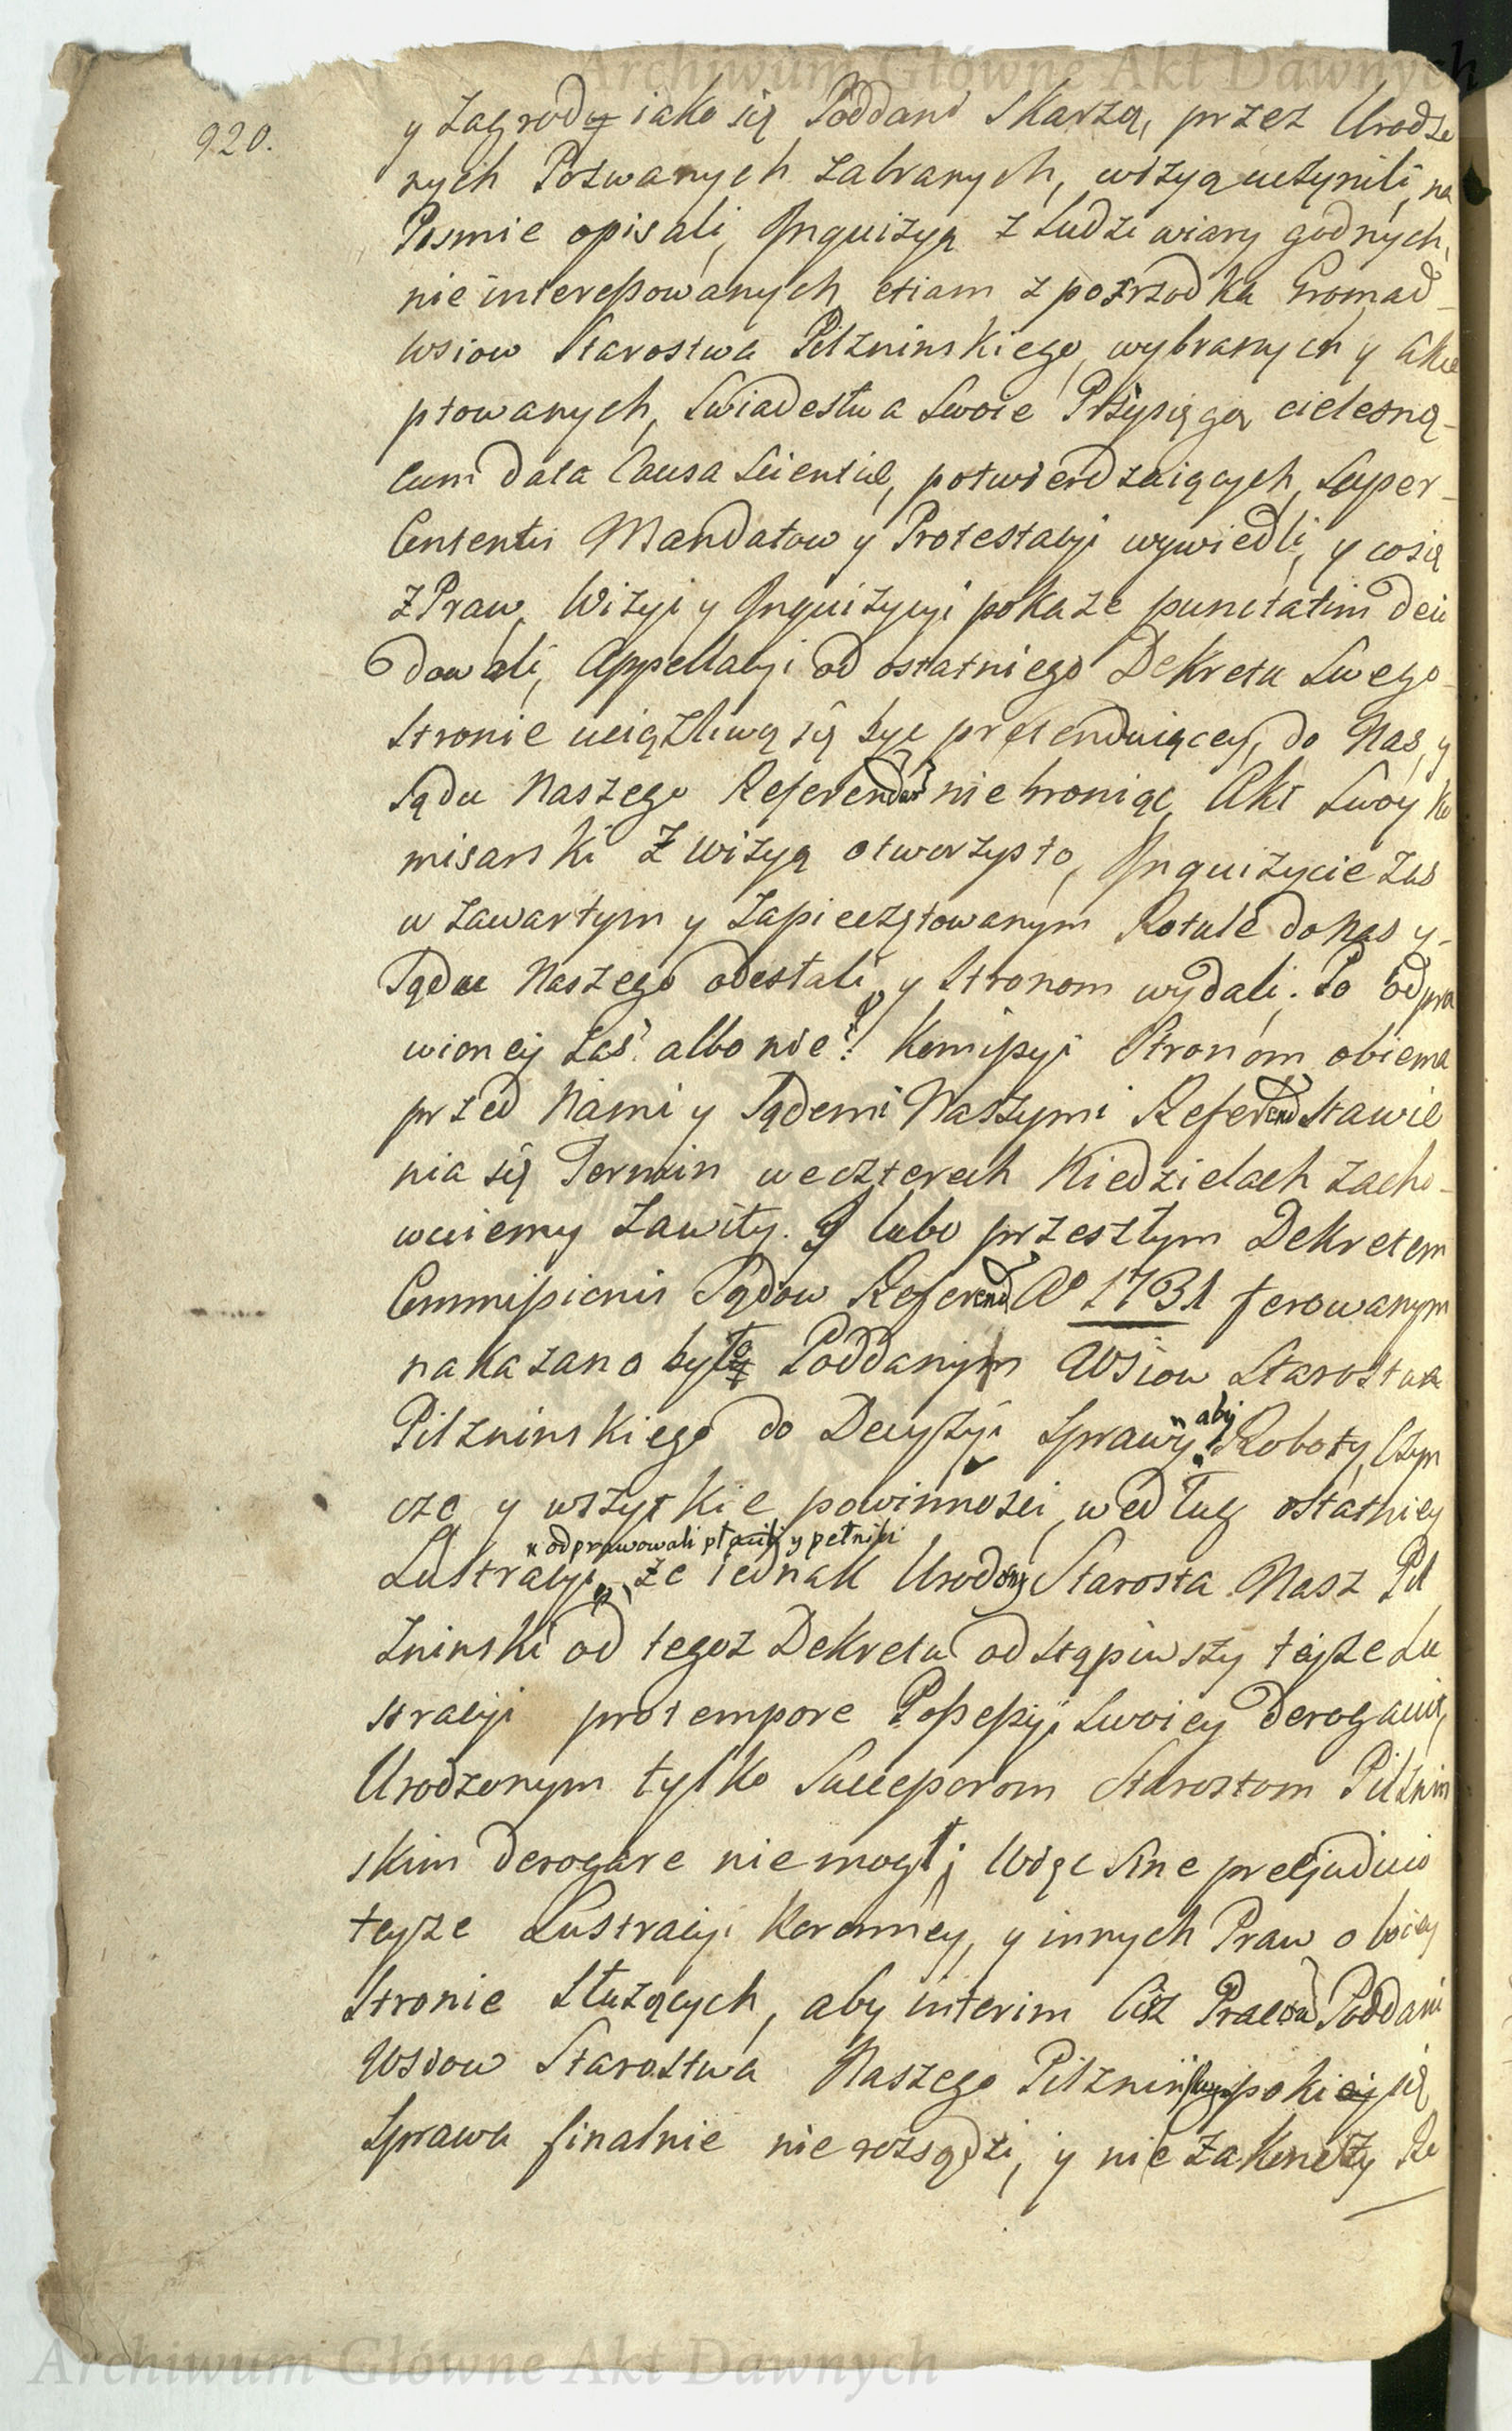 Archiwum Główne Akt Dawnych
920.
y Zagrody iako się Poddani Skarzą, przez Urodze
nych Pozwanych zabranych, wizyą uczynili, na
Pismie opisali, Inquizyą z ludzi wiary godnych,
nie interessowanych etiam z pośrzodka Gromad
Wsiow Starostwa Pilzninskiego, wybranych y akce
ptowanych, Swiadestwa Swoie Przysięgą cielesną
cum data Causa Scientiæ, potwierdzaiących, Super
Contentis Mandatow y Protestacyi wywiedli, y co się
z Praw, Wizyi y Inquizycyi pokaze punctatim deci
dowali, Appellacyi od ostatniego Dekretu Swego
Stronie uciązliwą się byc pretenduiącey, do Nas, y
Sądu Naszego Referendar nie broniąc, Akt Swoy Ko
misarski z wizyą otworzysto, Inquizycie zas
w zawartym y zapieczętowanym Rotule do Nas y
Sądu Naszego odesłali, y Stronom wydali. Po odpra
wioney zaś albo nie? Komissyi Stronom obiema
przed Nami y Sądemi Naszymi Referend Stawie
nia się Termin w czterech Niedzielach zacho
wuiemy zawity. I lubo przeszłym Dekretem
Commissionis Sądow Referend Aº 1731 ferowanym
nakazano było Poddanym Wsiow Starostwa
Pilzninskiego do Decyzyi Sprawy aby Roboty Czyn
sze y wszytkie powinnosci, według ostatniey
odprawowali płacili y pełnili
Lustracyi, że iednak Urodzony Starosta Nasz Pil
zninski od tegoz Dekretu odstąpiwszy teyze Lu
stracyi pro tempore Possessyi Swoiey derogavit,
Urodzonym tylko Successorom Starostom Pilznin
skim derogare nie mogł; Więc sine præjudicio
teyze Lustracyi Koronney, y innych Praw oboiey
Stronie Słuzących, aby interim Ciz Poddani
Wsiow Starostwa Naszego Pilznin poki się
Sprawa finalnie nie rozsądzi, y nie zakonczy Ro
Archiwum Główne Akt Dawnych